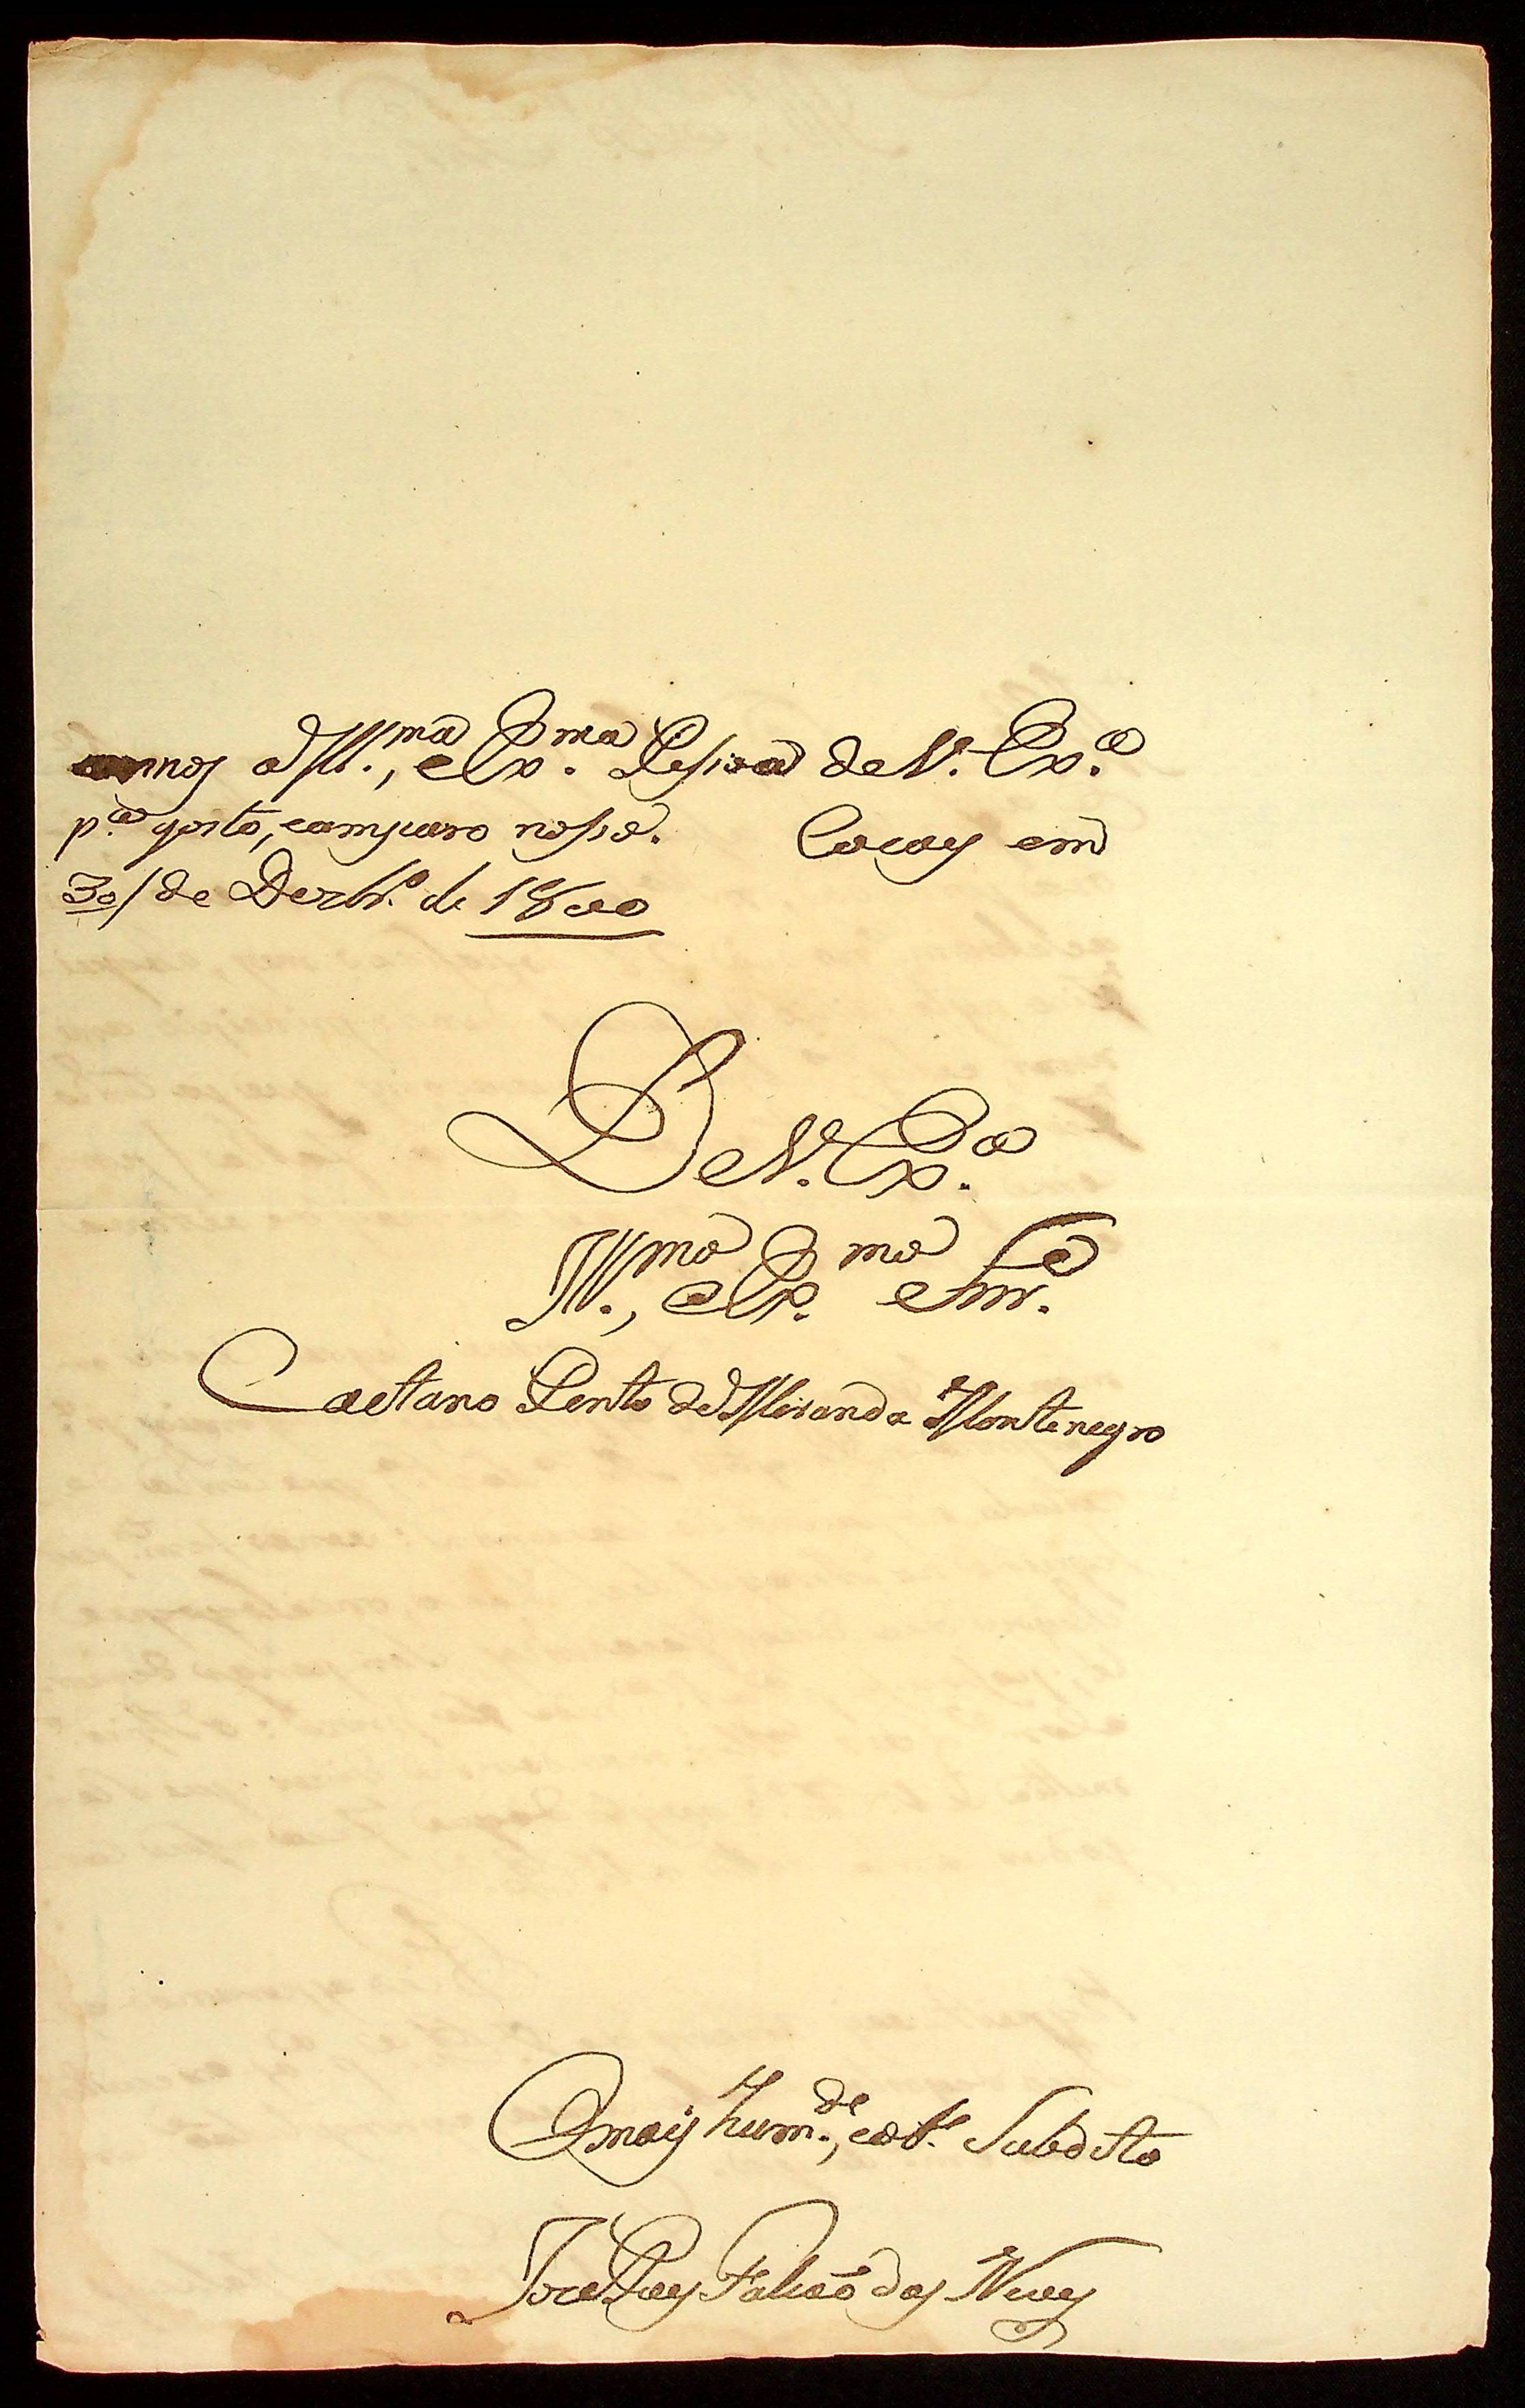 annos a Ill.ma, e Ex.ma Pesoa de V. Ex.a
p.a gosto, e amparo noso. Cocaes em
30/ de Dezbr.o de 1800
De V. Ex.a
Ill.mo, e Ex.mo Snr.
Caetano Pinto de Miranda Montenegro
O mais hum.de, e ob.e Subdito
Joze Paes Falcaõ das Neves